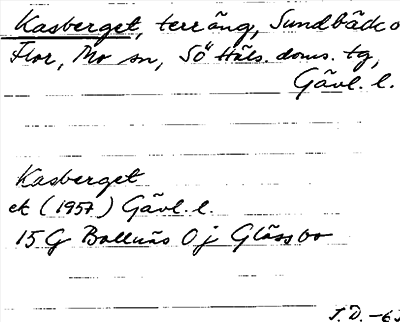 Kasberget, terräng, Sundbäck o
Flor, Mo sn, Sö Häls. doms. tg,
Gävl. l.
Kasberget
ek (1957) Gävl. l.
15 G Bollnäs 0 j Glössbo
J. D. -63